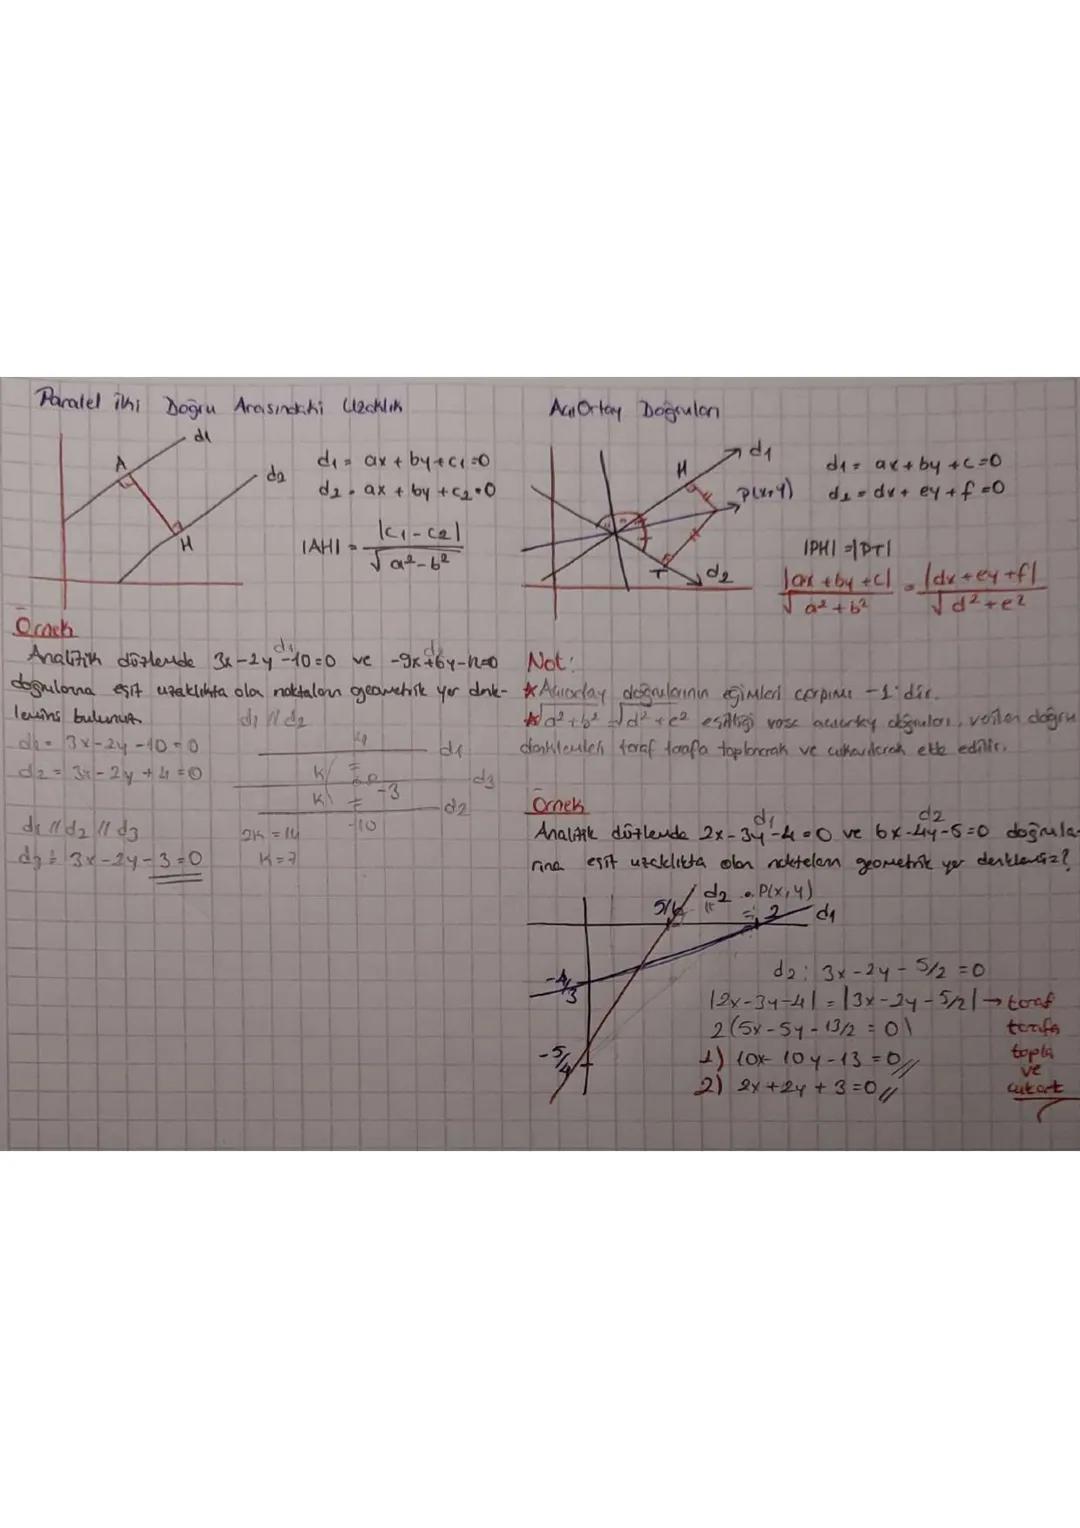 Paralel İki Doğru Arasındaki Uzaklık
d1
A
d2
H
d1 = ax + by + c1 = 0
d2 = ax + by + c2 = 0
|AH| = |c1 - c2| / √a² - b²
Örnek
Analitik düzlemde 3x - 2y - 10 = 0 ve -9x + 6y - 12 = 0
d1 d2
doğrularına eşit uzaklıkta olan noktaların geometrik yer denk-
lemini bulunuz.
d1 // d2
d1 = 3x - 2y - 10 = 0
d2 = 3x - 2y + 4 = 0
d1 // d2 // d3
d3 = 3x - 2y - 3 = 0
4 d1
K
d3
K -3
d2
-10
2K = 14
K = 7
Açı Ortay Doğruları
d1
H
P(x,y)
T
d2
d1 = ax + by + c = 0
d2 = dx + ey + f = 0
|PH| = |PT|
|ax + by + c| / √a² + b² = |dx + ey + f| / √d² + e²
Not:
★ Açıortay doğrularının eğimleri çarpımı -1'dir.
★ √a² + b² = √d² + e² eşitliği varsa açıortay doğruları, verilen doğru
denklemleri taraf tarafa toplanarak ve çıkarılarak elde edilir.
Örnek
d1 d2
Analitik düzlemde 2x - 3y - 4 = 0 ve 6x - 4y - 5 = 0 doğrula-
rına eşit uzaklıkta olan noktaların geometrik yer denklemi?
5/6 d2 P(x,y)
2 d1
-4/3
-5/4
d2: 3x - 2y - 5/2 = 0
|2x - 3y - 4| = |3x - 2y - 5/2| → taraf
2(5x - 5y - 13/2 = 0) tarafa
1) 10x - 10y - 13 = 0 // topla
ve
2) 2x + 2y + 3 = 0 // çıkart